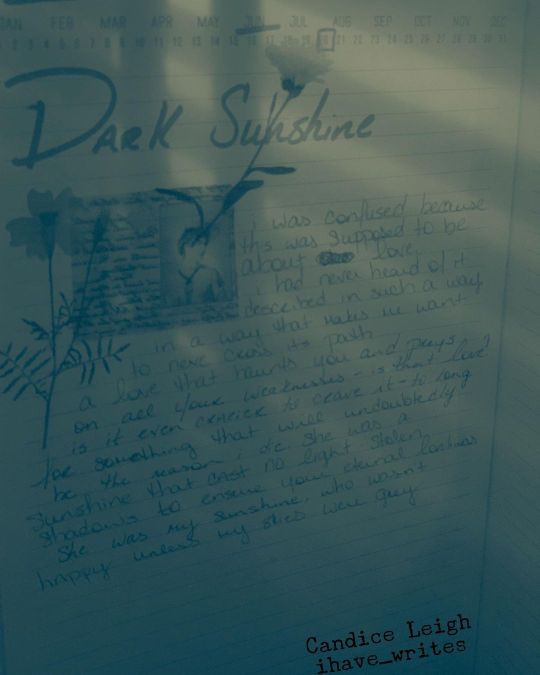 JAN FEB MAR APR MAY JUN JUL AUG SEP OCT NOV DEC
1 2 3 4 5 6 7 8 9 10 11 12 13 14 15 16 17 18 19 20 21 22 23 24 25 26 27 28 29 30 31
Dark Sunshine
i was confused because
this was supposed to be
about love
i had never heard of it
described in such a way
in a way that makes me want
to never cross its path
a love that haunts you and preys
on all your weaknesses - is that love?
is it even to crave it - to long
for something that will undoubtedly
be the reason i die. She was a
Sunshine that cast no light. Stolen
Shadows to ensure your eternal
She was my sunshine, who wasn't
happy unless my skies were grey
Candice Leigh
ihave_writes